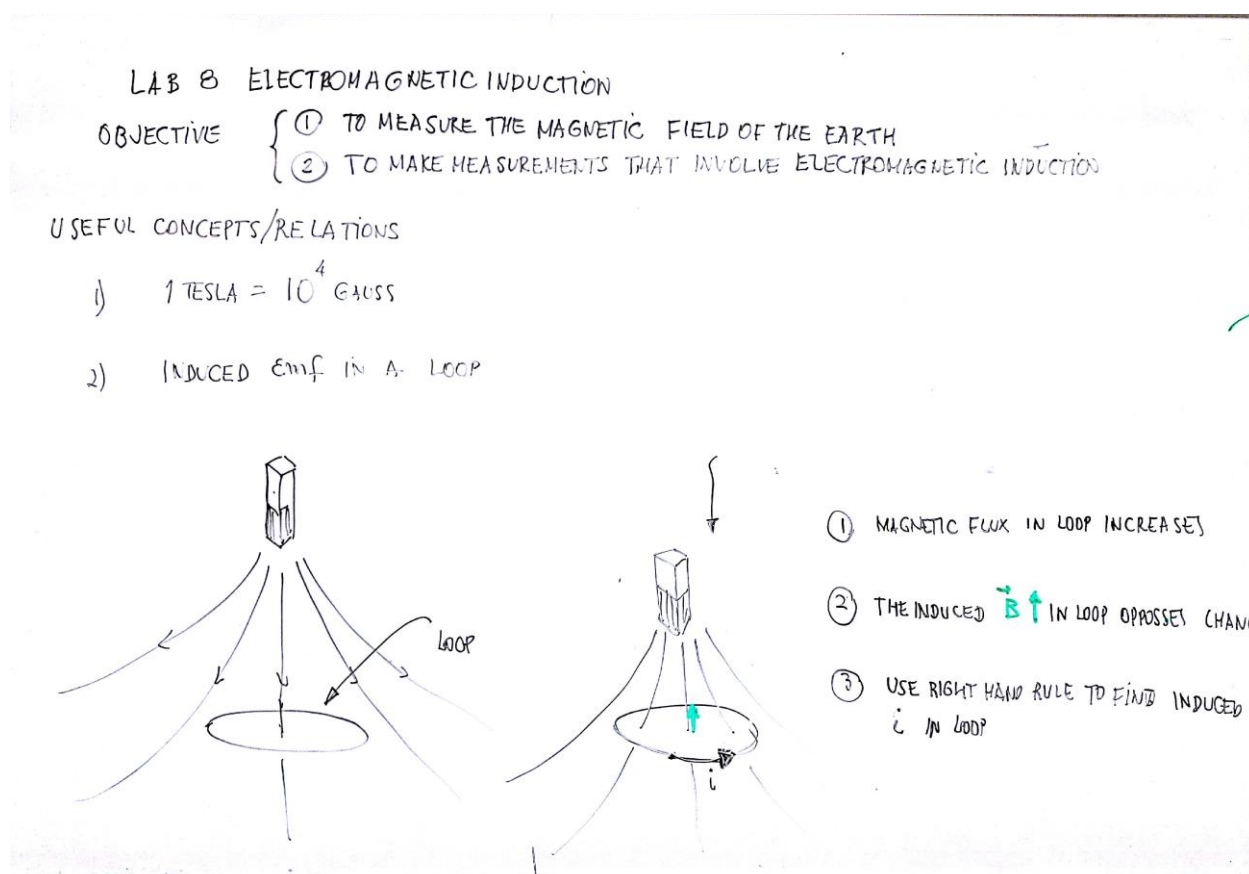 LAB 8 ELECTROMAGNETIC INDUCTION
OBJECTIVE
① TO MEASURE THE MAGNETIC FIELD OF THE EARTH
② TO MAKE MEASUREMENTS THAT INVOLVE ELECTROMAGNETIC INDUCTION
USEFUL CONCEPTS/RELATIONS
1) 1 TESLA = 10⁴ GAUSS
2) INDUCED Emf IN A LOOP
LOOP
i
① MAGNETIC FLUX IN LOOP INCREASES
② THE INDUCED B⃗ ↑ IN LOOP OPPOSSES CHAN
③ USE RIGHT HAND RULE TO FIND INDUCED
i IN LOOP